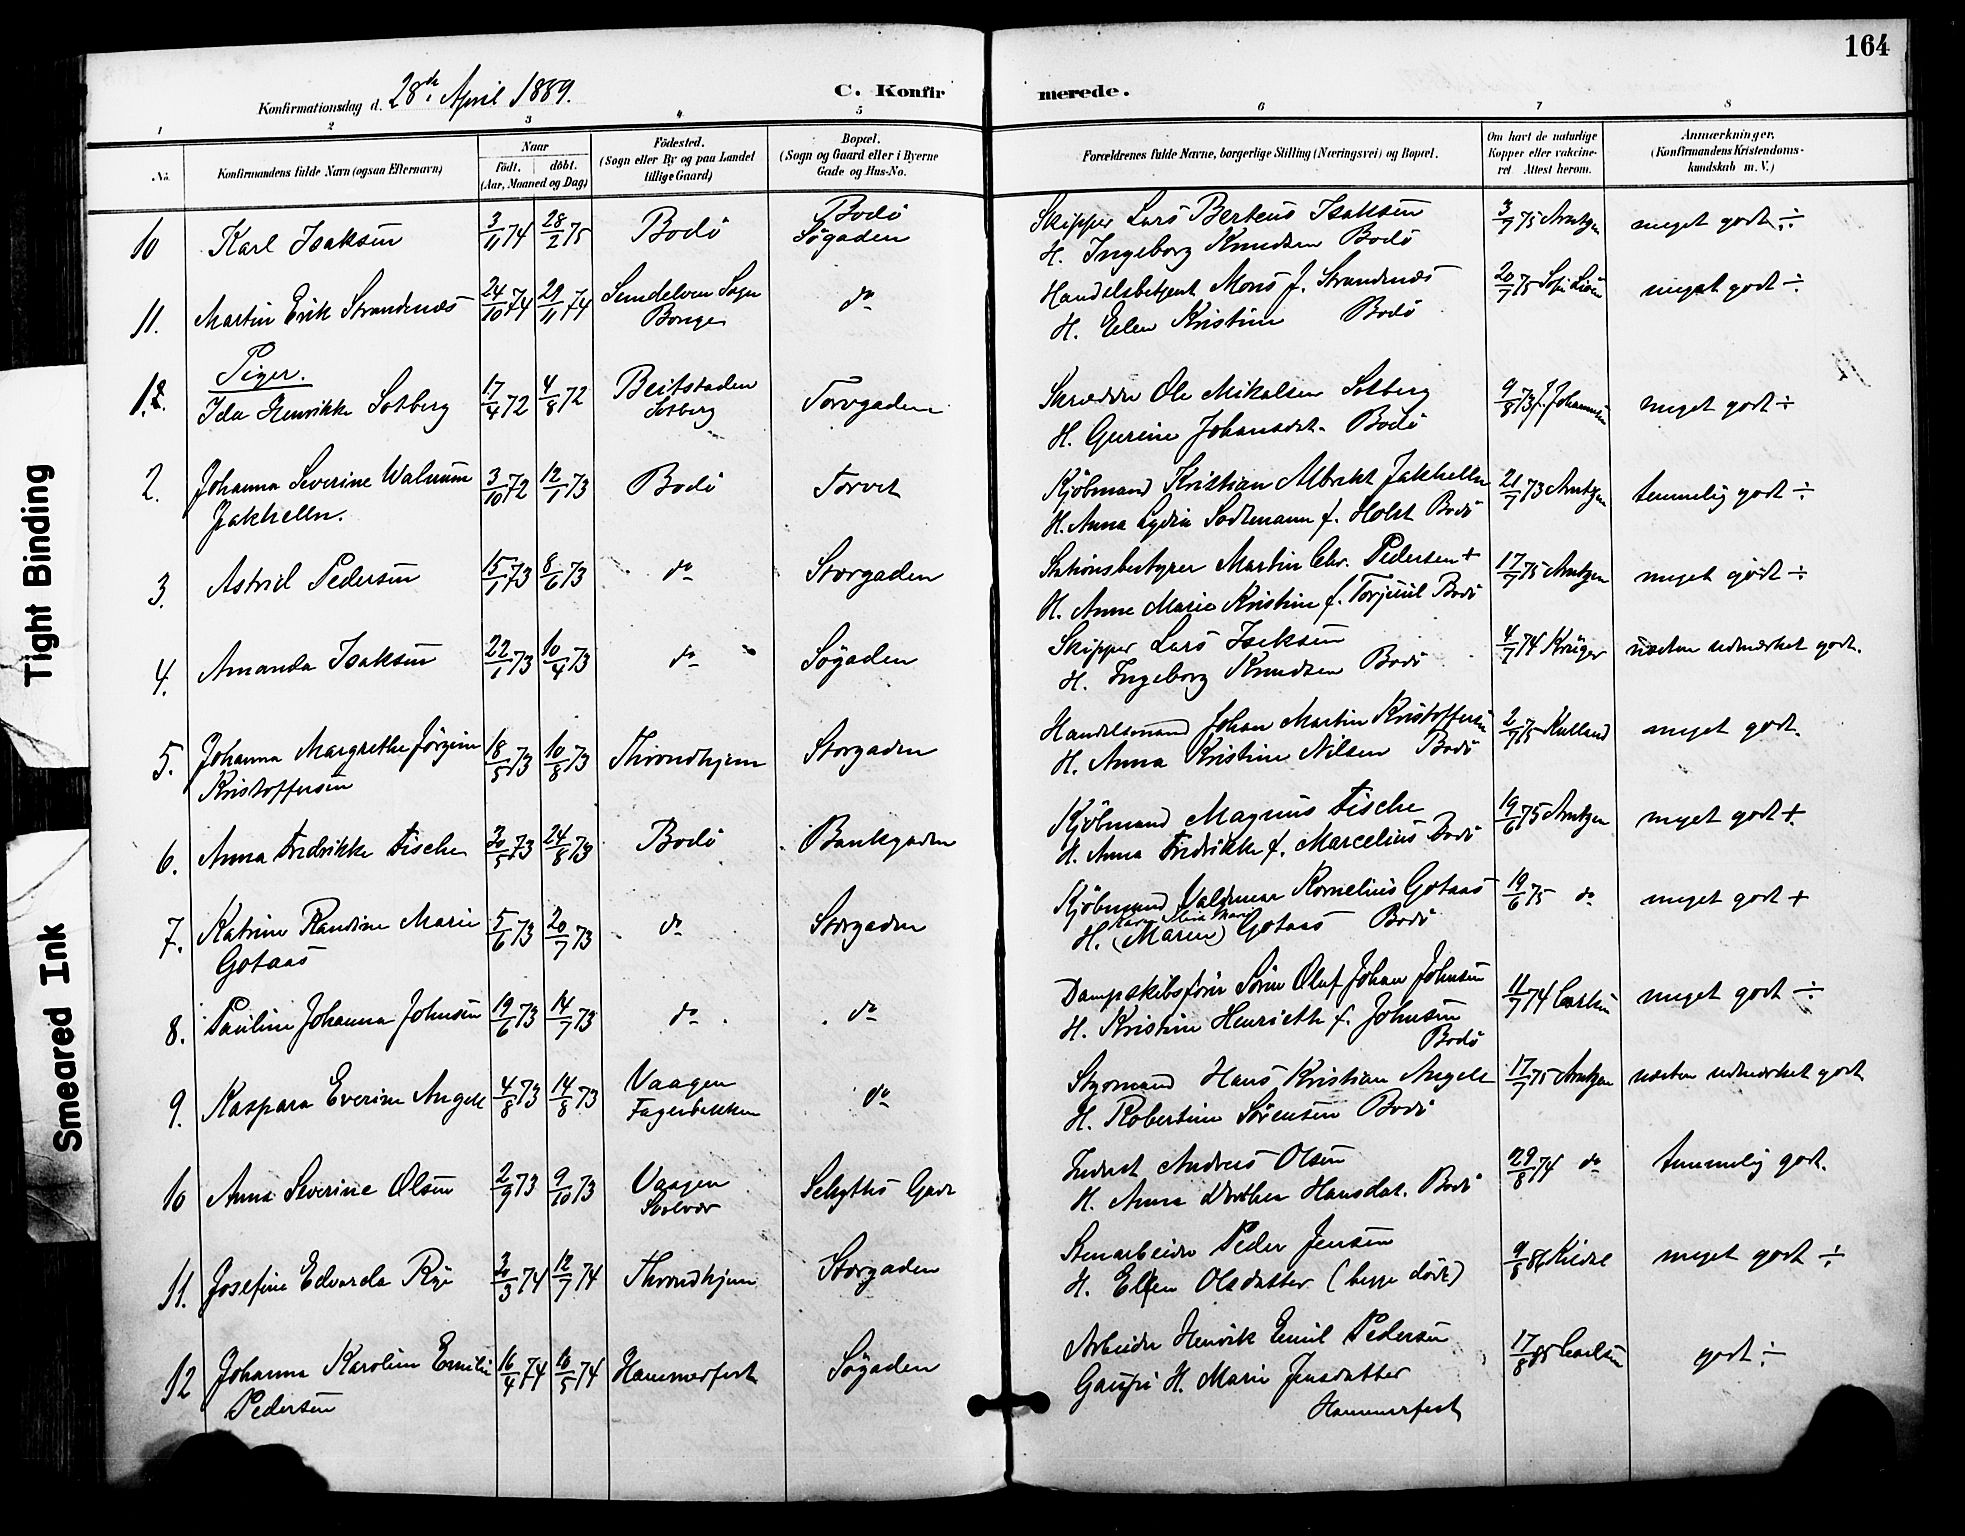 164
Konfirmationsdag d. 28de April 1889.
C. Konfirmerede.
1 2 3 4 5 6 7 8
No.
Konfirmandens fulde Navn (ogsaa Efternavn)
Naar
født. døbt.
(Aar, Maaned og Dag)
Fødested.
(Sogn eller By og paa Landet
tillige Gaard)
Bopæl.
(Sogn og Gaard eller i Byerne
Gade og Hus-No.
Forældrenes fulde Navne, borgerlige Stilling (Næringsvei) og Bopæl.
Om havt de naturlige
Kopper eller vakcine-
ret. Attest herom.
Anmærkninger.
(Konfirmandens Kristendoms-
kundskab m. V.)
10 Karl Isaksen 3/11 74 28/2 75 Bodö Bodö
Søgaden
Skipper Lars Berteus Isaksen
H. Ingeborg Knudsen Bodö
3/9 75 Arntzen meget godt ÷
11. Martin Erik Strandnæs 24/10 74 29/11 74 Sundelven Sogn
Borge
do
Handelsbetjent Mons J. Strandnæs
H. Elen Kristine Bodö
20/7 75 meget godt ÷
Piger.
1. Ida Henrikke Solberg 17/4 72 4/8 72 Beitstaden
Solberg
Torvgaden
Skrædder Ole Mikalsen Solberg
H. Gurine Johansdt. Bodö
9/8 73 J. Johannesen meget godt ÷
2. Johanna Severine Walnum
Jakhelln.
3/10 72 12/1 73 Bodö Torvet
Kjöbmand Kristian Albrikt Jakhelln
H. Anna Lydia Sodtmann f. Holst Bodö
21/7 73 Arntzen temmelig godt ÷
3. Astrid Pedersen 15/1 73 8/6 73 do Storgaden
Stationsbestyrer Martin Chr. Pedersen +
H. Anne Marie Kristine f. Torjuul Bodö
17/7 75 Arntzen meget godt ÷
4. Amanda Isaksen 22/1 73 10/4 73 do Søgaden
Skipper Lars Isaksen
H. Ingeborg Knudsen Bodö
4/7 74 Krüger næsten udmærket godt.
5. Johanna Margrethe Jørgine
Kristoffersen
18/5 73 10/8 73 Throndhjem Storgaden
Handelsmand Johan Martin Kristoffersen
H. Anna Kristine Nilsen Bodö
2/7 75 Kulland meget godt.
6. Anna Fredrikke Fische 30/5 73 24/8 73 Bodö Bankgaden
Kjöbmand Magnus Fische
H. Anna Fredrikke f. Marcelius Bodö
19/6 75 Arntzen meget godt +
7. Katrine Randine Marie
Gotaas
5/6 73 20/7 73 do Storgaden
Kjöbmand Valdemar Kornelius Gotaas
H. (Maren) Gotaas Bodö
19/6 75 do meget godt +
8. Pauline Johanna Johnsen 19/6 73 14/7 73 do do
Dampskibsfører Sörin Oluf Johan Johnsen
H. Kristine Henriette f. Johnsen
Bodö
11/7 74 meget godt ÷
9. Kaspara Everine Angell 4/8 73 14/8 73 Vaagen
Fagerbakken
do
Styrmand Hans Kristian Angell
H. Robertine Sørensen Bodö
17/7 75 Arntzen næsten udmærket godt
10 Anna Severine Olsen 2/9 73 9/10 73 Vaagen
Svolvær
Schyttes Gade
Inderst Andreas Olsen
H. Anna Dorthea Hansdat. Bodö
29/8 74 do temmelig godt.
11. Josefine Edvarda Rye 30/3 74 12/7 74 Throndhjem Storgaden
Stenarbeider Peder Jensen
H. Ellen Olsdatter (begge döde)
9/8 86 meget godt ÷
12 Johanna Karoline Emilie
Pedersen
16/4 74 10/5 74 Hammerfest Søgaden
Arbeider Henrik Emil Pedersen
H. Marie Jensdatter
Hammerfest
17/8 85 Carlsen godt ÷
Tight Binding
Smeared Ink